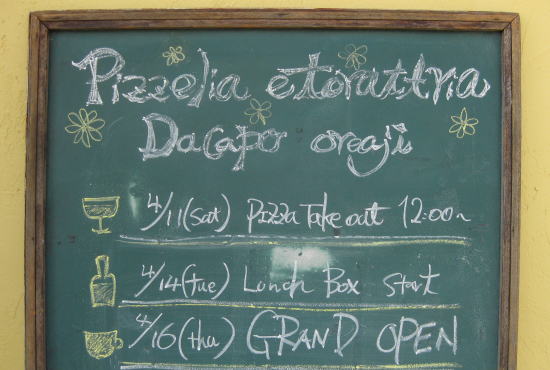 Pizzelia etorattria
Dacapo oreaji
4/11(sat) Pizza Take out 12:00~
4/14(tue) Lunch Box Start
4/16(thu) GRAND OPEN